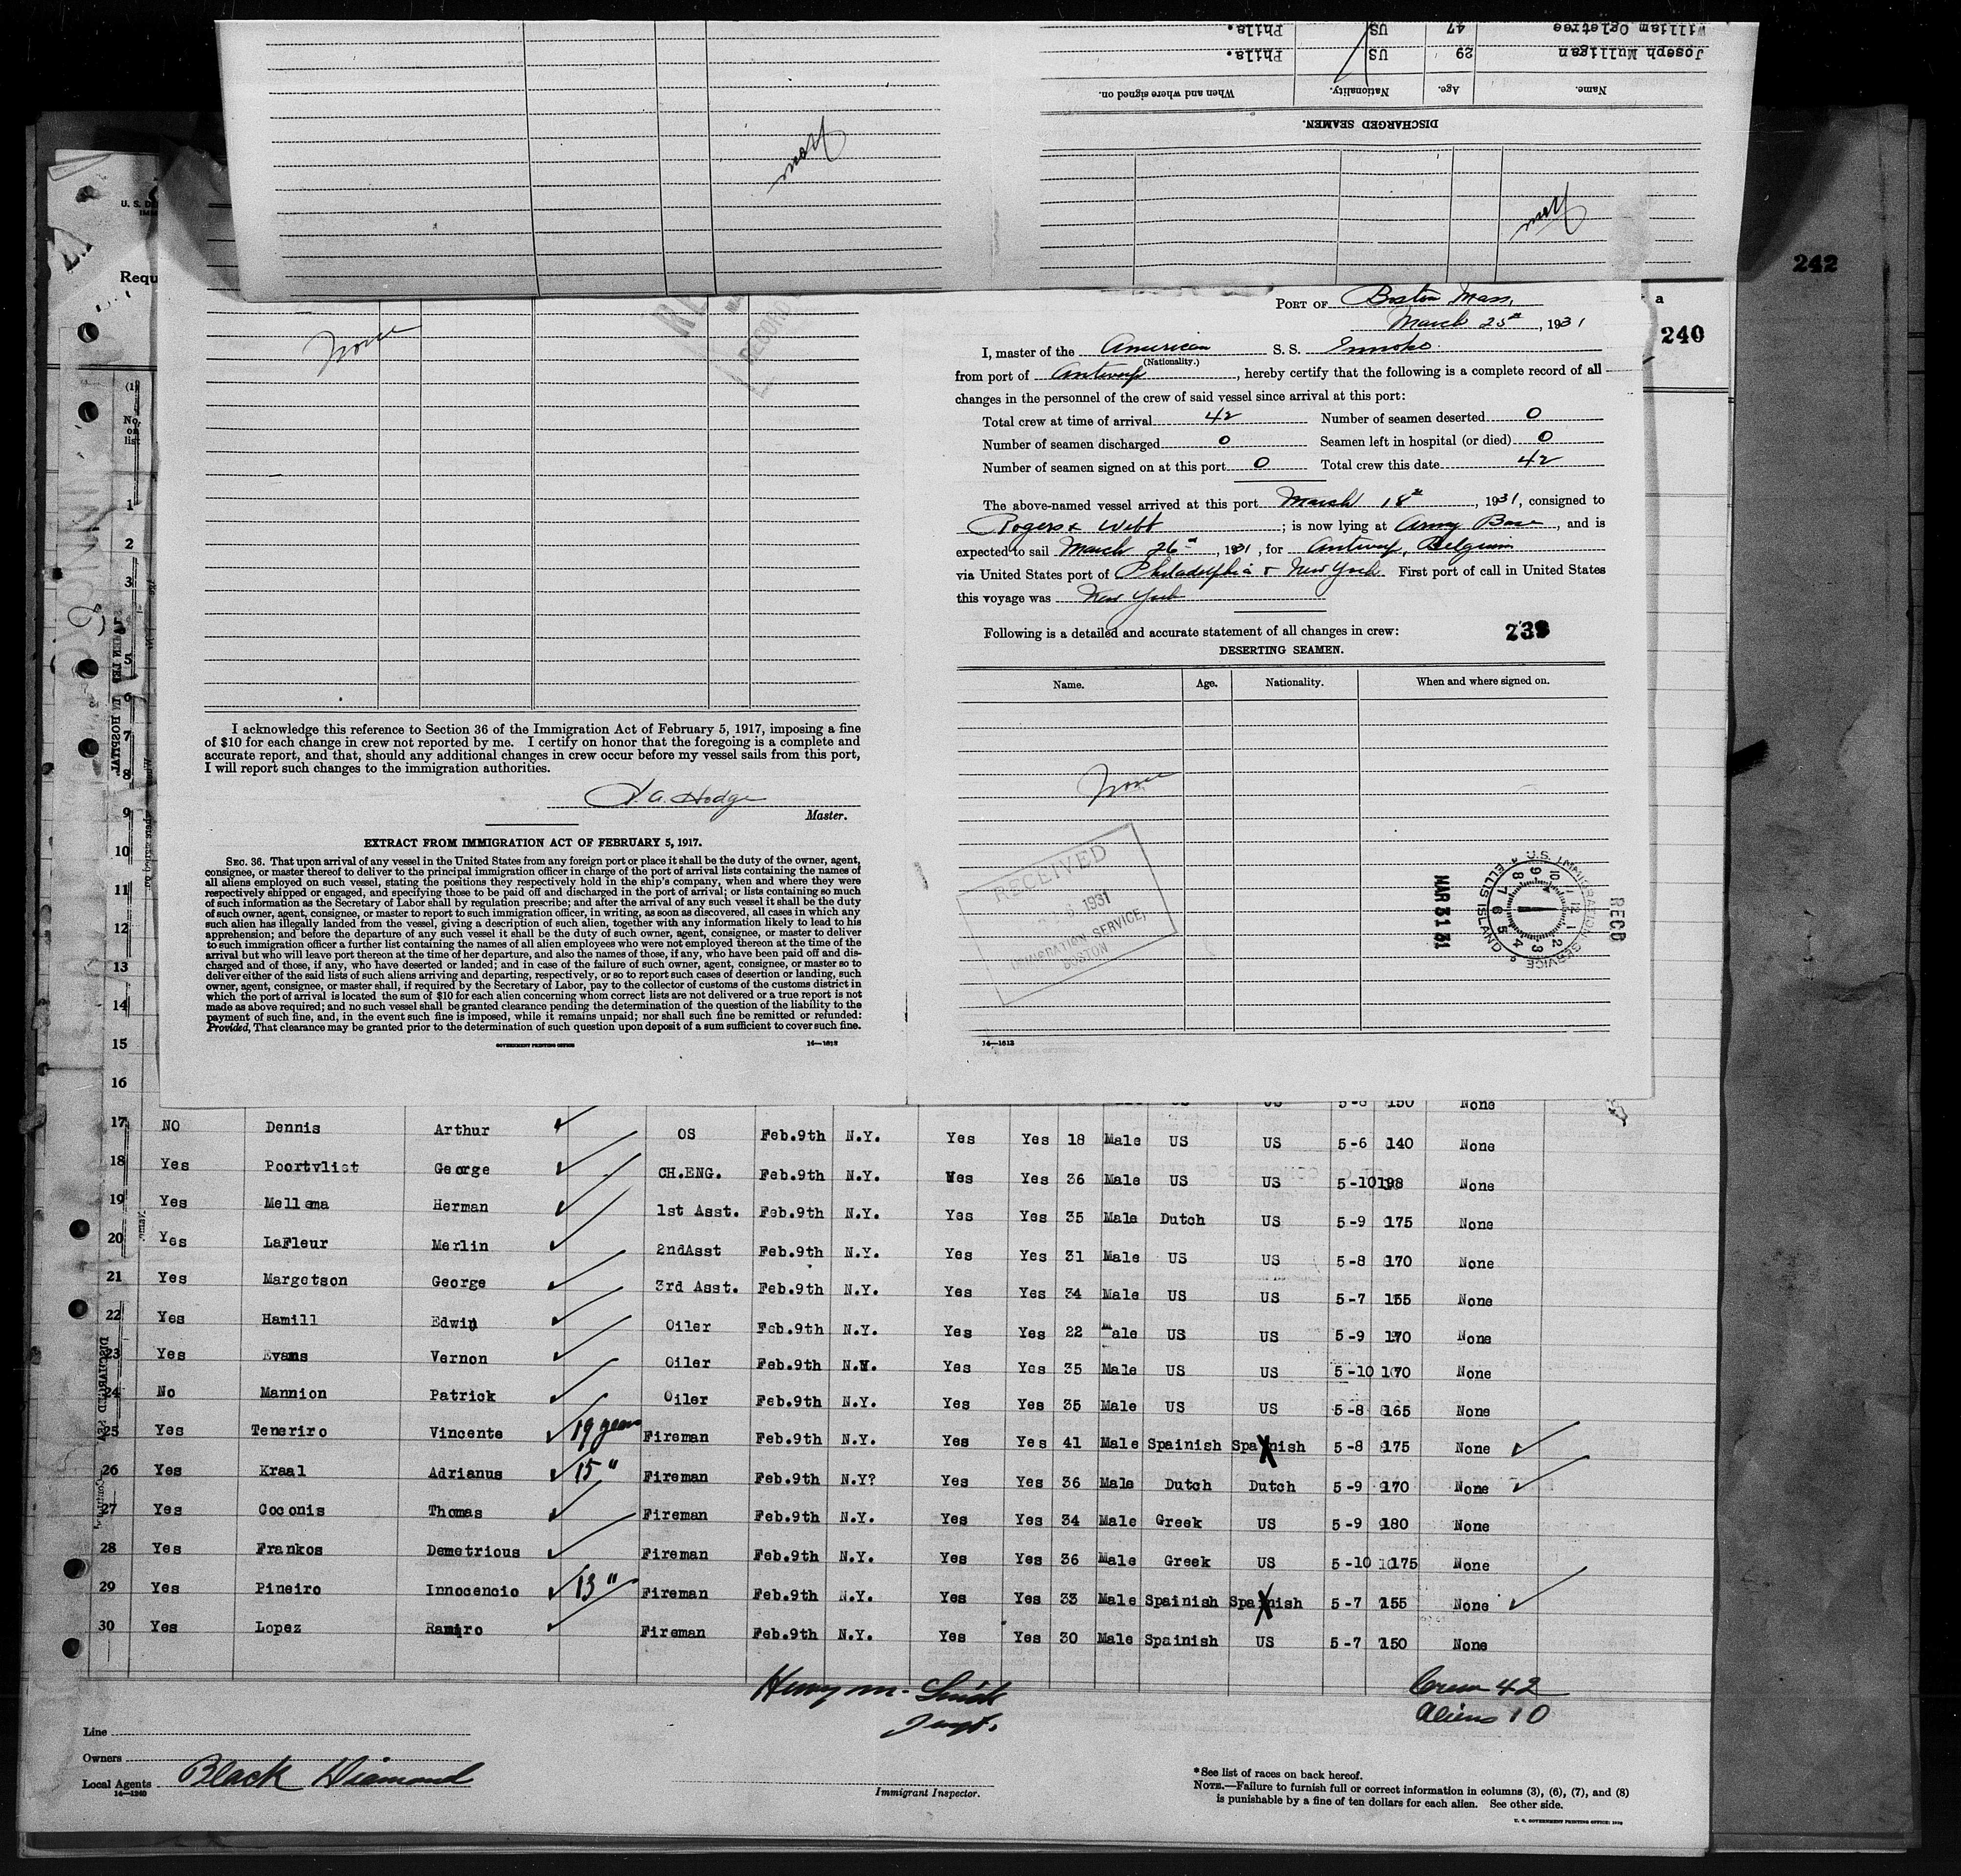 William Ogletree 47 US Phila.
Joseph Mulligan 29 US Phila.
Name. Age. Nationality. When and where signed on.
DISCHARGED SEAMEN.
None
None
242
240
a
U. S. D
Requ
(1)
No.
on
list
None
PORT OF Boston Mass,
March 25th, 1931
I, master of the American S. S.
(Nationality.)
from port of Antwerp, hereby certify that the following is a complete record of all
changes in the personnel of the crew of said vessel since arrival at this port:
Total crew at time of arrival 42 Number of seamen deserted 0
Number of seamen discharged 0 Seamen left in hospital (or died) 0
Number of seamen signed on at this port 0 Total crew this date 42
The above-named vessel arrived at this port March 18th, 1931, consigned to
Rogers & Webb ; is now lying at Army Base, and is
expected to sail March 26th, 1931, for Antwerp, Belgium
via United States port of Philadelphia & New York. First port of call in United States
this voyage was New York
Following is a detailed and accurate statement of all changes in crew:
239
DESERTING SEAMEN.
Name. Age. Nationality. When and where signed on.
None
RECEIVED
1931
IMMIGRATION SERVICE,
BOSTON
RECD
U.S. IMMIGRATION SERVICE
ELLIS ISLAND
MAR 31 31
14—1613
I acknowledge this reference to Section 36 of the Immigration Act of February 5, 1917, imposing a fine
of $10 for each change in crew not reported by me. I certify on honor that the foregoing is a complete and
accurate report, and that, should any additional changes in crew occur before my vessel sails from this port,
I will report such changes to the immigration authorities.
A. Hodge
Master.
EXTRACT FROM IMMIGRATION ACT OF FEBRUARY 5, 1917.
SEC. 36. That upon arrival of any vessel in the United States from any foreign port or place it shall be the duty of the owner, agent,
consignee, or master thereof to deliver to the principal immigration officer in charge of the port of arrival lists containing the names of
all aliens employed on such vessel, stating the positions they respectively hold in the ship's company, when and where they were
respectively shipped or engaged, and specifying those to be paid off and discharged in the port of arrival; or lists containing so much
of such information as the Secretary of Labor shall by regulation prescribe; and after the arrival of any such vessel it shall be the duty
of such owner, agent, consignee, or master to report to such immigration officer, in writing, as soon as discovered, all cases in which any
such alien has illegally landed from the vessel, giving a description of such alien, together with any information likely to lead to his
apprehension; and before the departure of any such vessel it shall be the duty of such owner, agent, consignee, or master to deliver
to such immigration officer a further list containing the names of all alien employees who were not employed thereon at the time of the
arrival but who will leave port thereon at the time of her departure, and also the names of those, if any, who have been paid off and dis-
charged and of those, if any, who have deserted or landed; and in case of the failure of such owner, agent, consignee, or master so to
deliver either of the said lists of such aliens arriving and departing, respectively, or so to report such cases of desertion or landing, such
owner, agent, consignee, or master shall, if required by the Secretary of Labor, pay to the collector of customs of the customs district in
which the port of arrival is located the sum of $10 for each alien concerning whom correct lists are not delivered or a true report is not
made as above required; and no such vessel shall be granted clearance pending the determination of the question of the liability to the
payment of such fine, and, in the event such fine is imposed, while it remains unpaid; nor shall such fine be remitted or refunded:
Provided, That clearance may be granted prior to the determination of such question upon deposit of a sum sufficient to cover such fine.
GOVERNMENT PRINTING OFFICE 14—1613
1
2
3
5
6
7
8
9
10
11
12
13
14
15
16
5-8 150 None
17 NO Dennis Arthur OS Feb.9th N.Y. Yes Yes 18 Male US US 5-6 140 None
18 Yes Poortvliet George CH.ENG. Feb.9th N.Y. Yes Yes 36 Male US US 5-10 198 None
19 Yes Mellema Herman 1st Asst. Feb.9th N.Y. Yes Yes 35 Male Dutch US 5-9 175 None
20 Yes LaFleur Merlin 2ndAsst Feb.9th N.Y. Yes Yes 31 Male US US 5-8 170 None
21 Yes Margetson George 3rd Asst. Feb.9th N.Y. Yes Yes 34 Male US US 5-7 155 None
22 Yes Hamill Edwin Oiler Feb.9th N.Y. Yes Yes 22 Male US US 5-9 170 None
23 Yes Evans Vernon Oiler Feb.9th N.Y. Yes Yes 35 Male US US 5-10 170 None
24 No Mannion Patrick Oiler Feb.9th N.Y. Yes Yes 35 Male US US 5-8 165 None
25 Yes Teneriro Vincente 19 years Fireman Feb.9th N.Y. Yes Yes 41 Male Spainish Spainish 5-8 175 None
26 Yes Kraal Adrianus 15 " Fireman Feb.9th N.Y? Yes Yes 36 Male Dutch Dutch 5-9 170 None
27 Yes Coconis Thomas Fireman Feb.9th N.Y. Yes Yes 34 Male Greek US 5-9 180 None
28 Yes Frankos Demetrious Fireman Feb.9th N.Y. Yes Yes 36 Male Greek US 5-10 175 None
29 Yes Pineiro Innocencio 13 " Fireman Feb.9th N.Y. Yes Yes 33 Male Spainish Spainish 5-7 155 None
30 Yes Lopez Ramiro Fireman Feb.9th N.Y. Yes Yes 30 Male Spainish US 5-7 150 None
Henry M. Smith
Inspt.
Crew 42
Aliens 10
Line
Owners
Local Agents Black Diamond
14—1240
Immigrant Inspector.
* See list of races on back hereof.
NOTE.—Failure to furnish full or correct information in columns (3), (6), (7), and (8)
is punishable by a fine of ten dollars for each alien. See other side.
U. S. GOVERNMENT PRINTING OFFICE: 1929